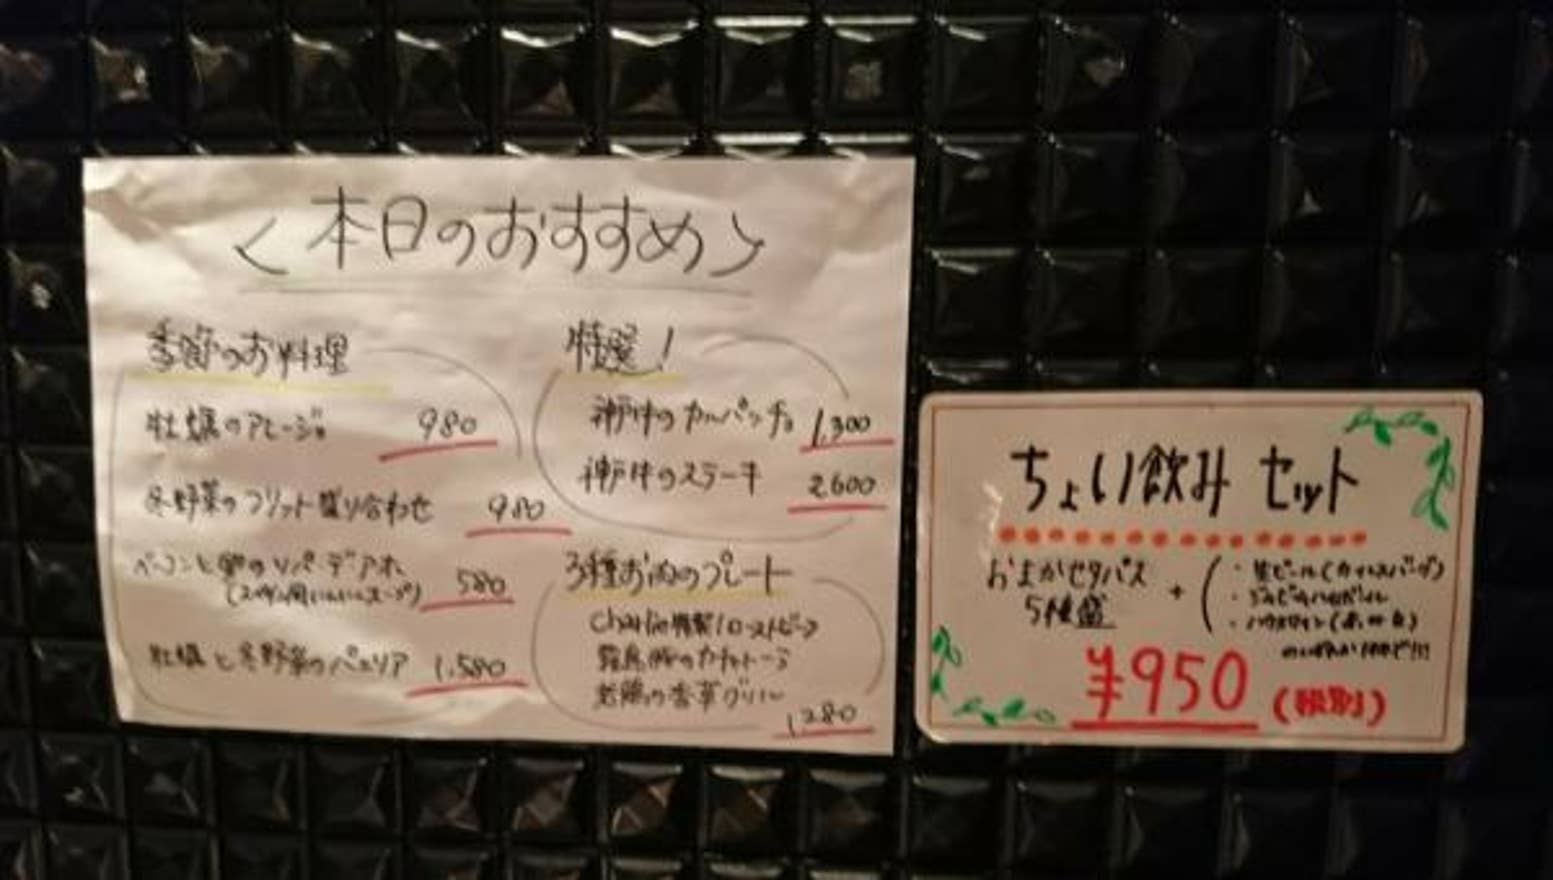 本日のおすすめ
季節のお料理
牡蠣のアヒージョ 980
冬野菜のフリット盛り合わせ 980
ベーコンと卵のソパ デ アホ
580
牡蠣と冬野菜のパエリア 1,580
特選!
神戸牛のカルパッチョ 1,300
神戸牛のステーキ 2600
3種お肉のプレート
Charlie特製ローストビーフ
若鶏の香草グリル
1,280
ちょい飲みセット
おまかせタパス
5種盛
+
・生ビール(カールスバーグ)
・ハウスワイン(赤 or 白)
¥950(税別)